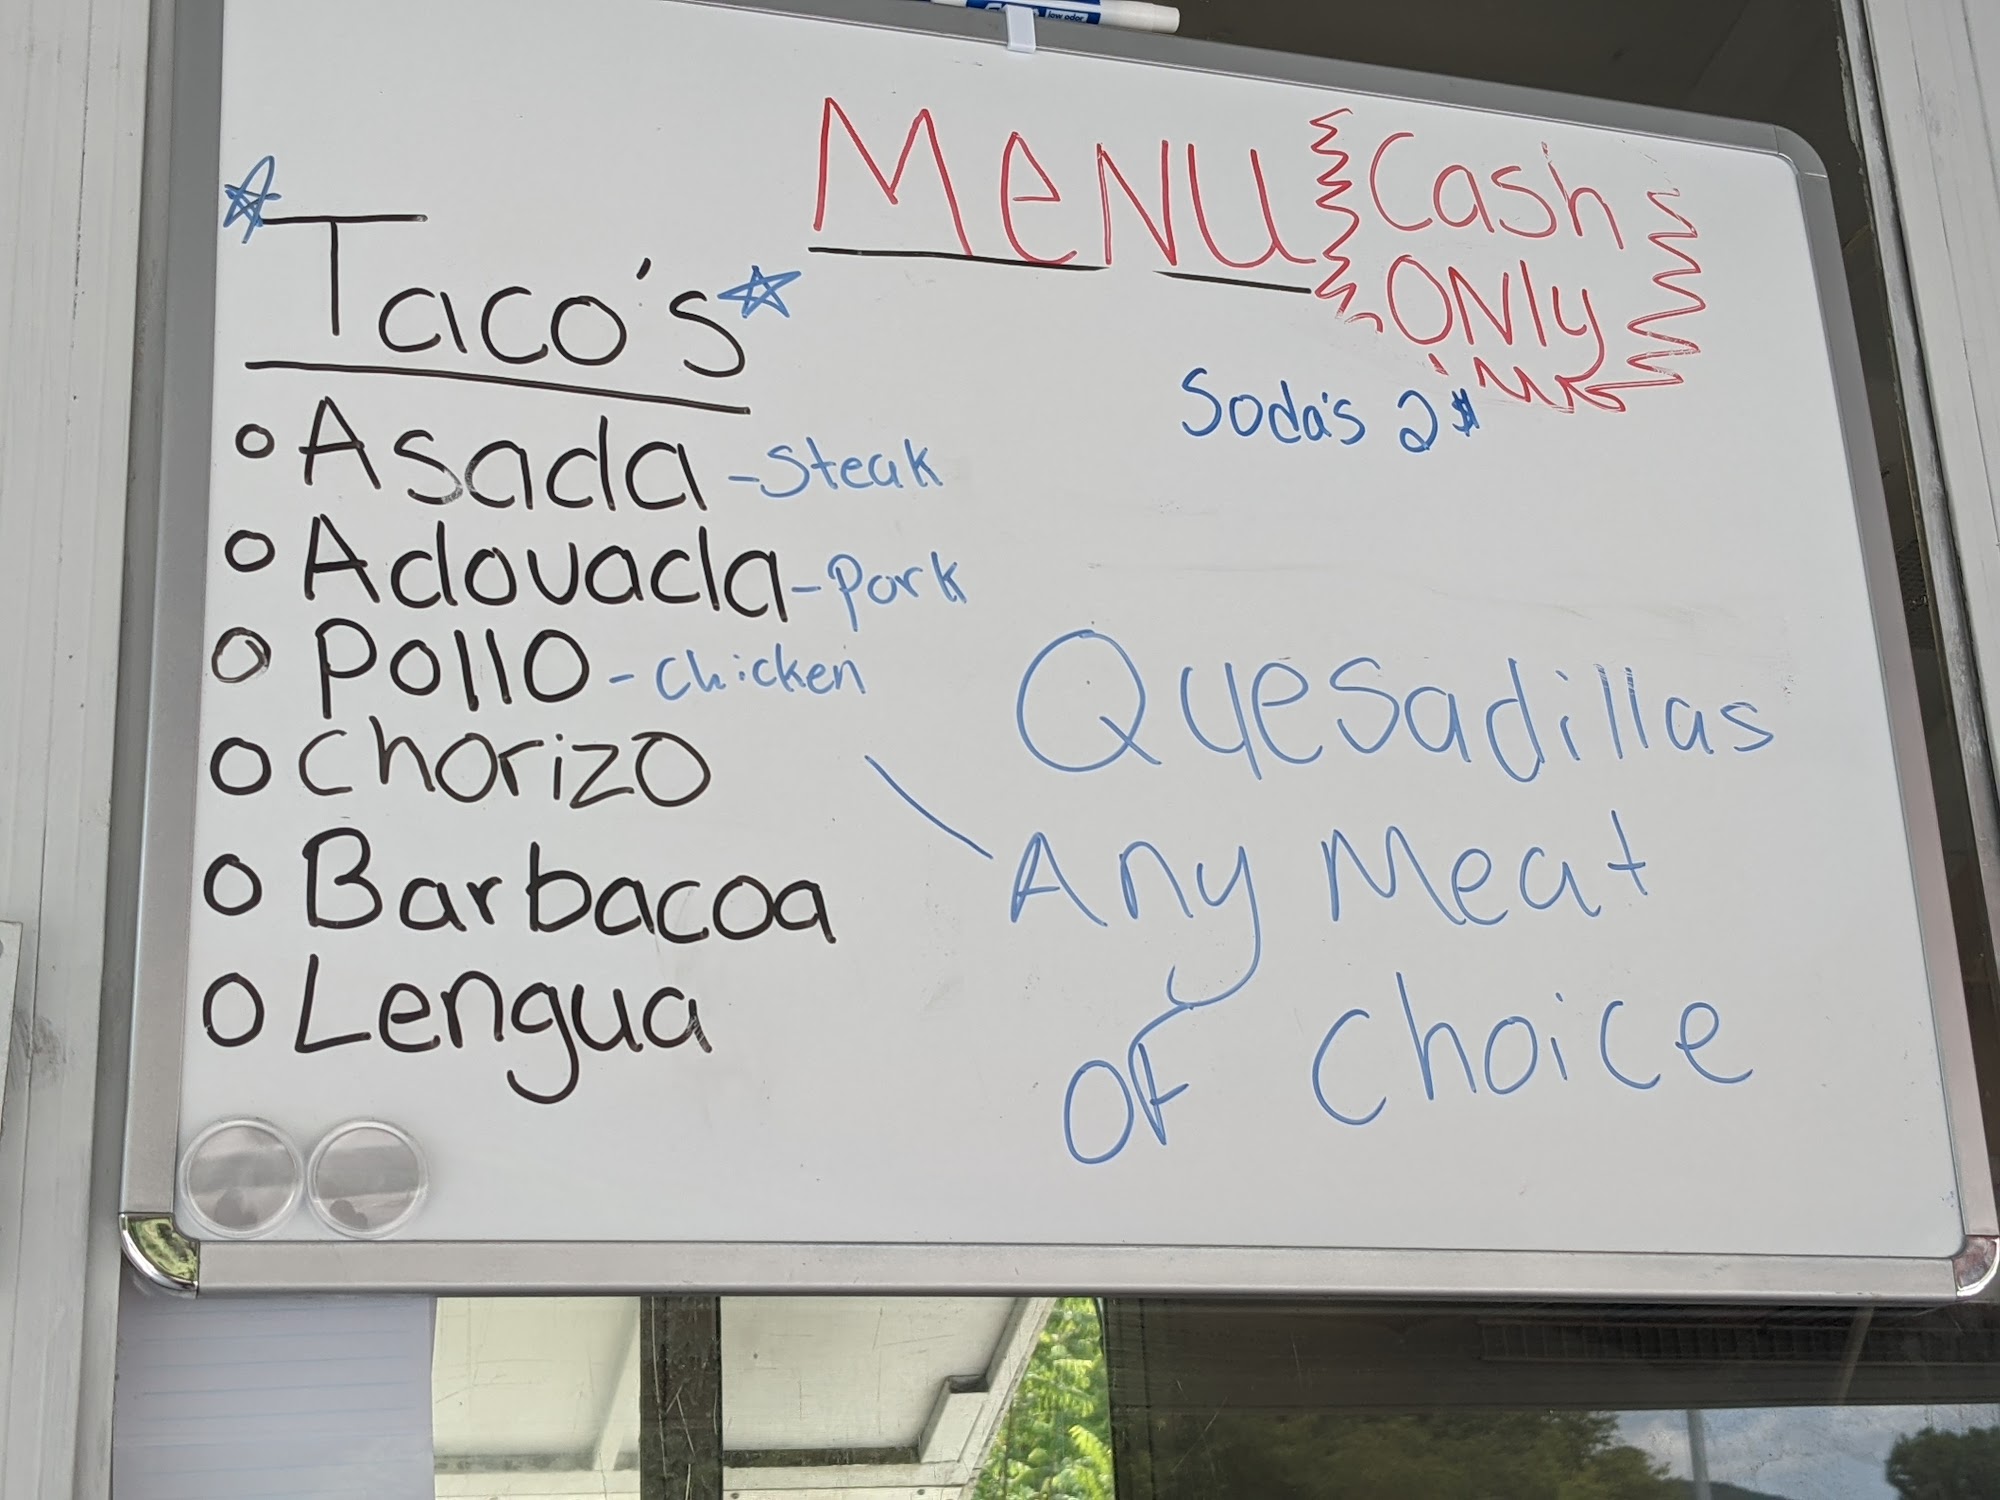 low odor
MeNU
Cash
ONly
Taco's
Soda's 2$
Asada - Steak
Adovada - Pork
Pollo - Chicken
Chorizo
Barbacoa
Lengua
Quesadillas
Any Meat
OF Choice